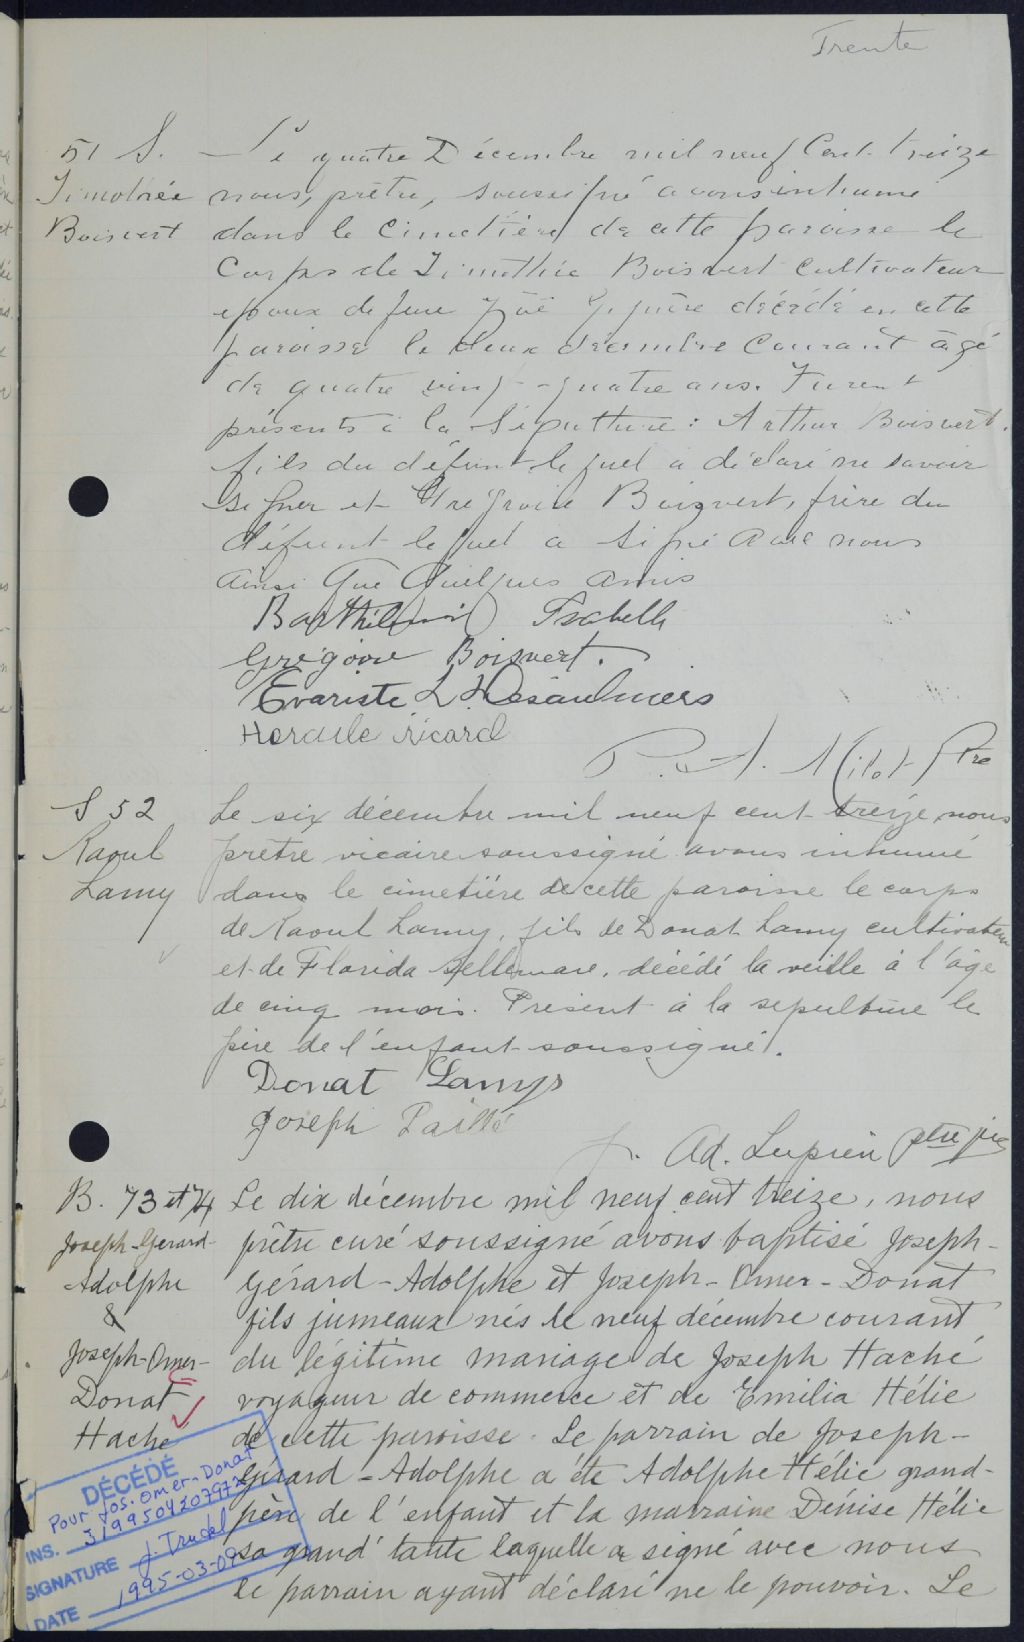 Trente
51 S.
Timothée
Boisvert
Le quatre Décembre mil neuf Cent treize
nous, prêtre, soussigné avons inhumé
dans le Cimetière de cette paroisse le
Corps de Timothée Boisvert Cultivateur
epoux de feue décédé en cette
paroisse le deux décembre Courant âgé
de quatre vingt-quatre ans. Furent
présents à la Sépulture : Arthur Boisvert.
fils du défunt lequel a déclaré ne savoir
signer et Grégoire Boisvert, frère du
défunt lequel a signé avec nous
ainsi que quelques amis
Barthélemie Isabelle
Grégoire Boisvert.
Evariste L Desaulniers
Herculle ricard
P. A. Milot Ptre
S 52
Raoul
Lamy
Le six décembre mil neuf cent treize nous
prêtre vicaire soussigné avons inhumé
dans le cimetière de cette paroisse le corps
de Raoul Lamy, fils de Donat Lamy cultivateur
et de Florida Bellemare, décédé la veille à l'âge
de cinq mois. Présent à la sepulture le
père de l'enfant soussigné.
Donat Lamy
Joseph Paillé
J. Ad. Lupien ptre vic
B. 73 et 74
Joseph-Gerard-
Adolphe
&
Joseph-Omer-
Donat
Haché
Le dix décembre mil neuf cent treize, nous
prêtre curé soussigné avons baptisé Joseph-
Gérard-Adolphe et Joseph-Omer-Donat
fils jumeaux nés le neuf décembre courant
du légitime mariage de Joseph Haché
voyageur de commerce et de Emilia Hélie
de cette paroisse. Le parrain de Joseph-
Gérard-Adolphe a été Adolphe Hélie grand-
père de l'enfant et la marraine Denise Hélie
sa grand'tante laquelle a signé avec nous
le parrain ayant déclaré ne le pouvoir. Le
DÉCÉDÉ
Pour Jos. Omer-Donat
INS. 
SIGNATURE J. Trudel
DATE 1995-03-09